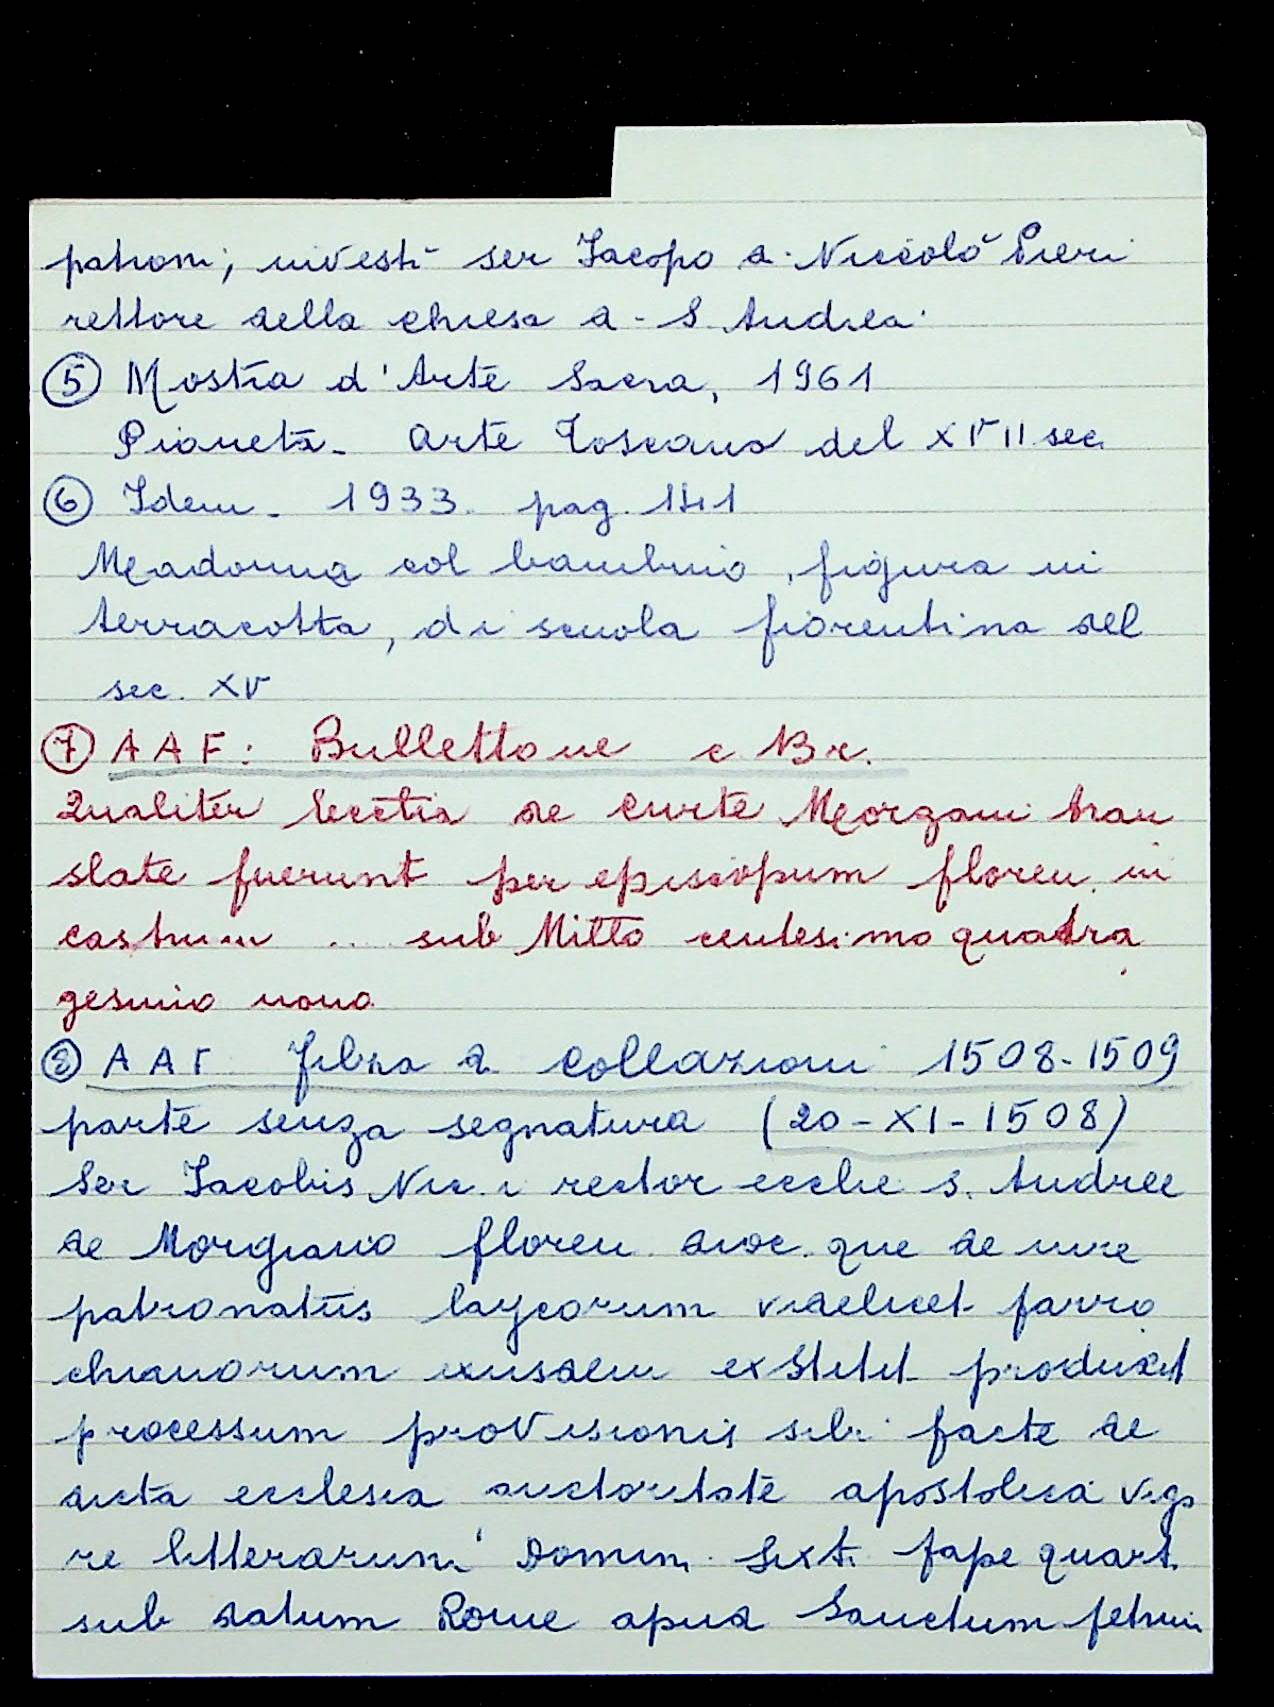 patroni, investì ser Jacopo d. Niccolò Pieri
rettore della chiesa d. S. Andrea.
⑤ Mostra d'Arte Sacra, 1961
Pianeta - arte Toscana del XVII sec.
⑥ Idem. 1933. pag. 141
Madonna col bambino, figura in
terracotta, di scuola fiorentina del
sec. XV
⑦ AAF: Bullettone c. 13 r.
Qualiter de Curte Morgani tran
slate fuerunt per episcopum floren. in
castrum .. sub Millo centesimo quadra
gesimo nono
⑧ AAF. filza d. Collazioni 1508-1509
parte senza segnatura (20-XI-1508)
Ser Jacobis Nic. i rector ecclie s. Andree
de Morgiano floren. dioc. que de iure
patronatus laycorum videlicet parro
chianorum eiusdem exstitit produxit
processum provisionis sibi facte de
dicta ecclesia auctoritate apostolica vigo
re litterarum Domini Sixti pape quart.
sub datum Rome apud Sanctum petrum